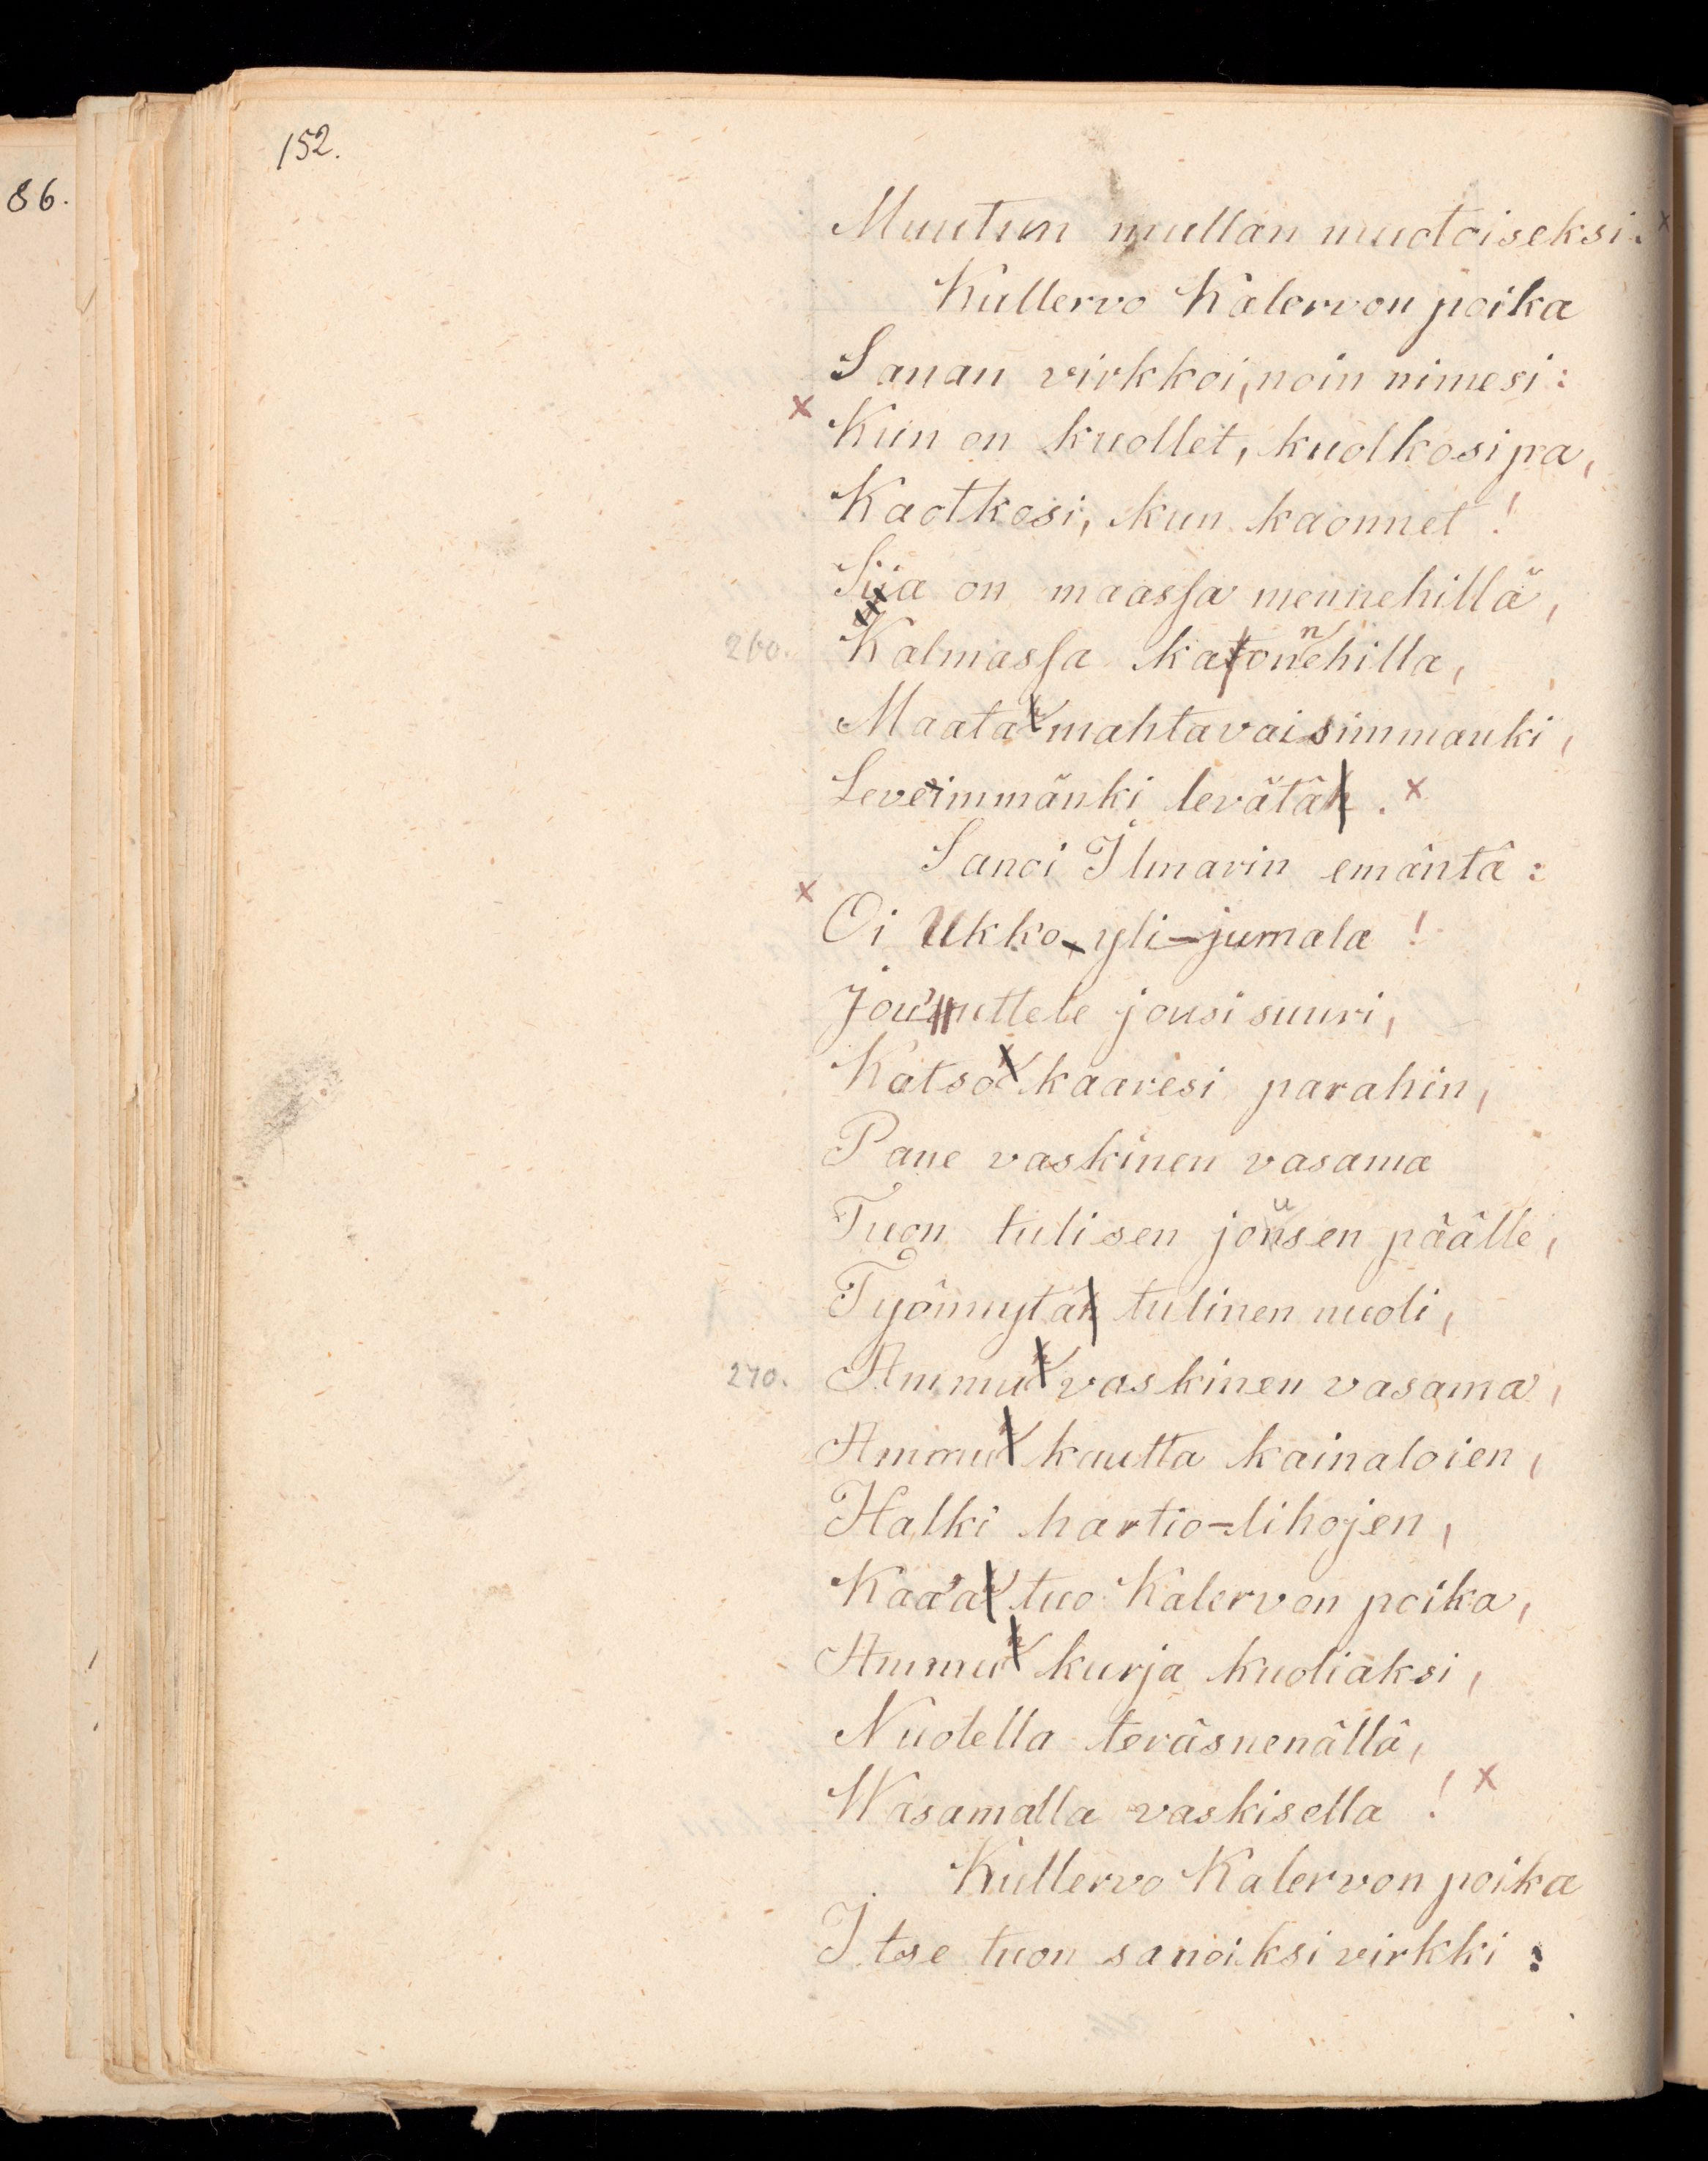 152.
86.
Muutun mullan muotoiseksi. x
Kullervo Kalervon poika
Sanan virkkoi, noin nimesi:
x
Kun on kuollet, kuolkosipa,
Kaotkosi, kun kaonnet!
Siia on maassa mennehillä,
260. Kalmassa kaonnehilla,
Maata mahtavaisimmanki,
Leveimmänki levätä. x
Sanoi Ilmarin emäntä:
x
Oi Ukko yli-jumala!
Jou'uttele jousi suuri,
Katso kaaresi parahin,
Pane vaskinen vasama
Tuon tulisen jousen päälle,
Työnnytä tulinen nuoli,
270. Ammu vaskinen vasama,
Ammu kautta kainaloien,
Halki hartio-lihojen,
Kaa'a tuo Kalervon poika,
Ammu kurja kuoliaksi,
Nuolella teräsnenällä,
Wasamalla vaskisella! x
Kullervo Kalervon poika
Itse tuon sanoiksi virkki: